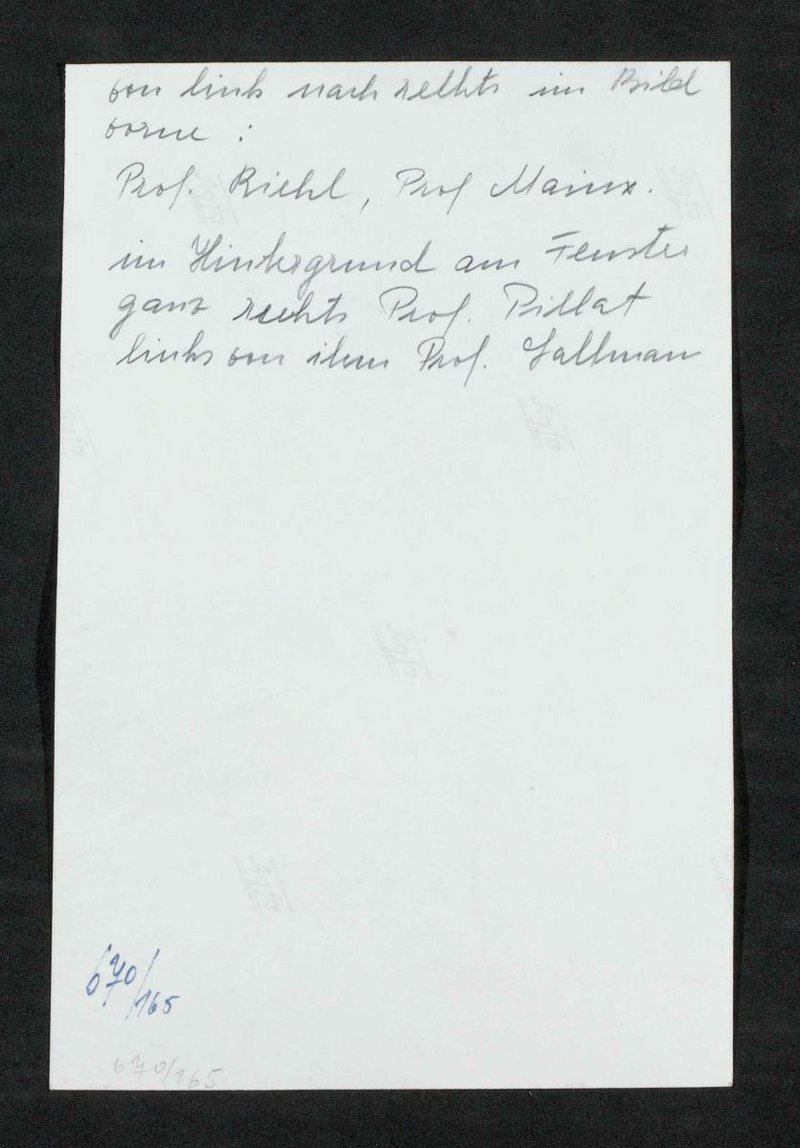 von link nach rechts im Bild
vorne :
Prof. Riehl, Prof Mainx.
im Hintergrund am Fenster
ganz rechts Prof. Pillat
links von ihm Prof. Lallman
670/165
670/165